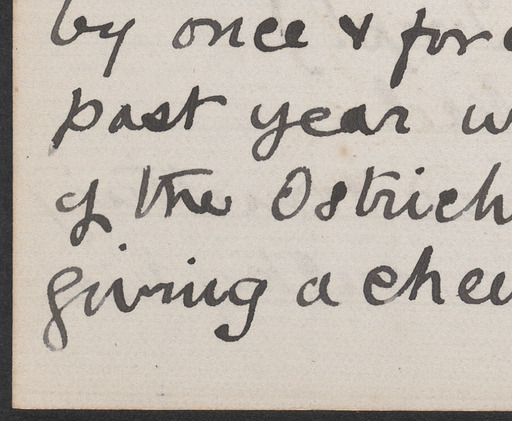 by once & for
past year w
of the Ostrich
giving a chee